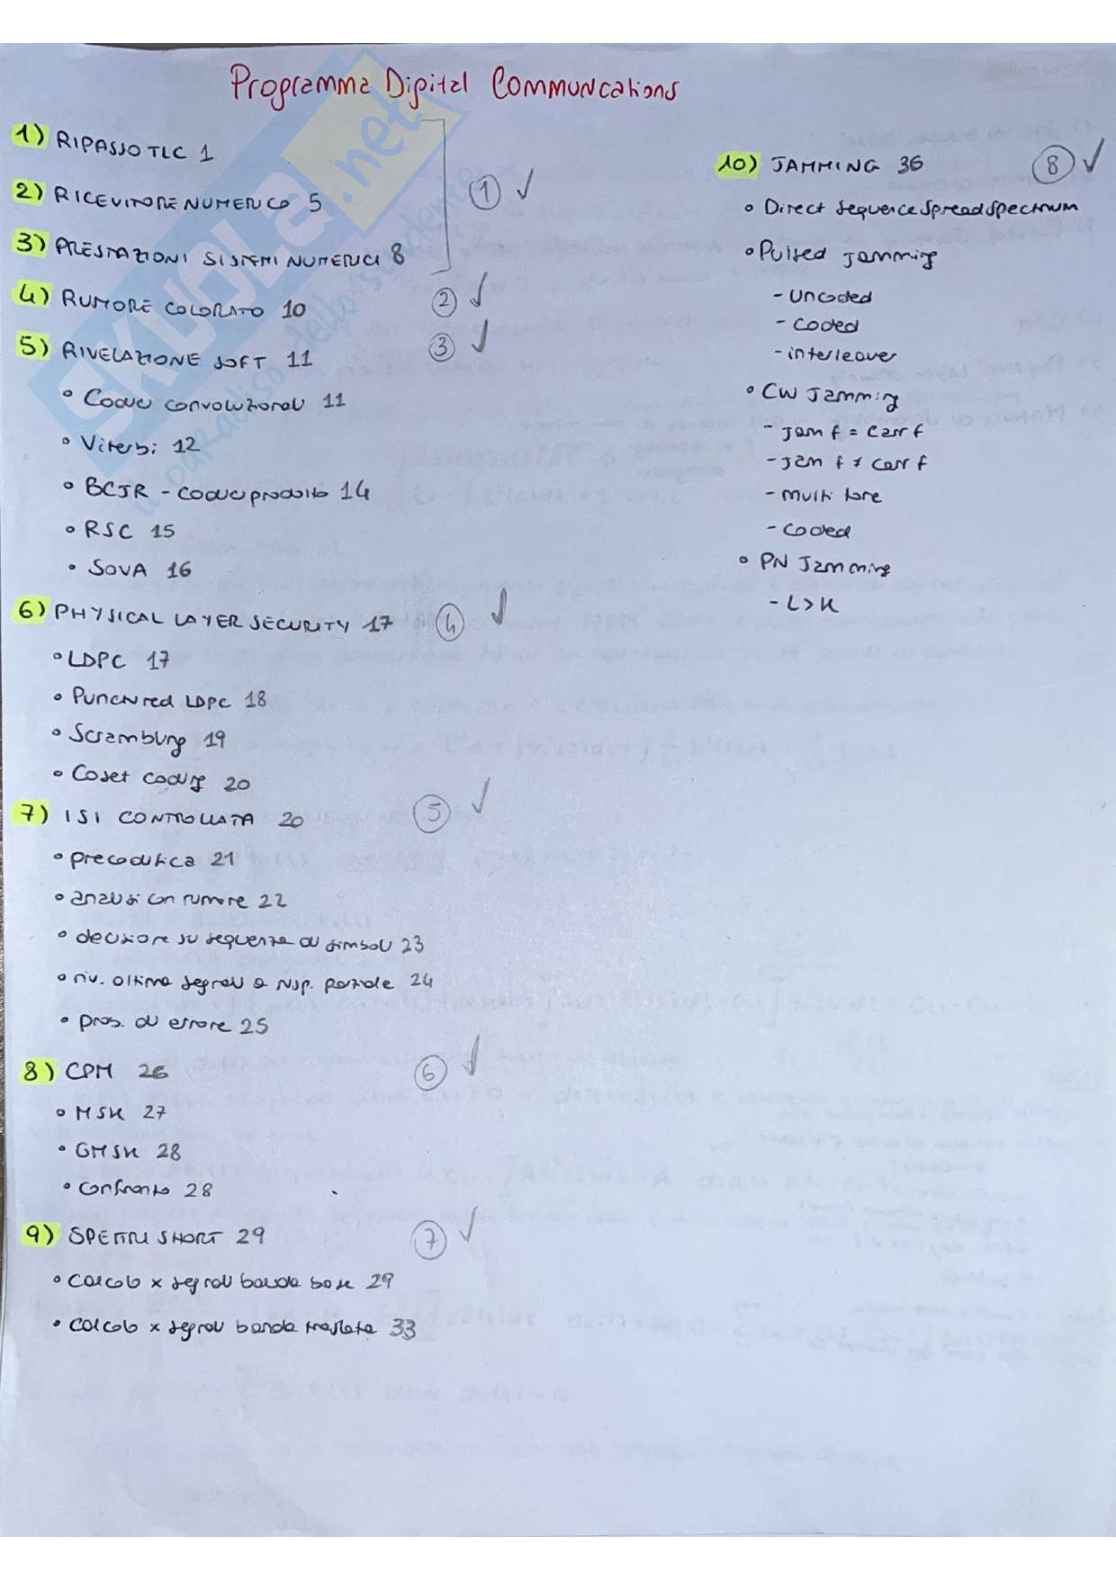 Programma Digital Communcations
1) RIPASSO TLC 1
2) RICEVITORE NUMERICO 5
3) PRESTAZIONI SISTEMI NUMERICI 8
1 ✓
4) RUMORE COLORATO 10
2 ✓
5) RIVELAZIONE SOFT 11
3 ✓
• Codici convoluzionali 11
• Viterbi 12
• BCJR - codici prodotto 14
• RSC 15
• SOVA 16
6) PHYSICAL LAYER SECURITY 17
4 ✓
• LDPC 17
• Punctured LDPC 18
• Scrambling 19
• Coset coding 20
7) ISI CONTROLLATA 20
5 ✓
• precodifica 21
• analisi con rumore 22
• decisione su sequenza di simboli 23
• riv. ottima segnali a risp. parziale 24
• prob. di errore 25
8) CPM 26
6 ✓
• MSK 27
• GMSK 28
• Confronto 28
9) SPETTRI SHORT 29
7 ✓
• Calcolo x segnali banda base 29
• Calcolo x segnali banda traslata 33
10) JAMMING 36
8 ✓
• Direct Sequence Spread Spectrum
• Pulsed Jamming
- Uncoded
- Coded
- interleaver
• CW Jamming
- Jam f = Carr f
- Jam f ≠ Carr f
- Multi tone
- Coded
• PN Jamming
- L>K
SKUOLA.net
il paradiso dello studente